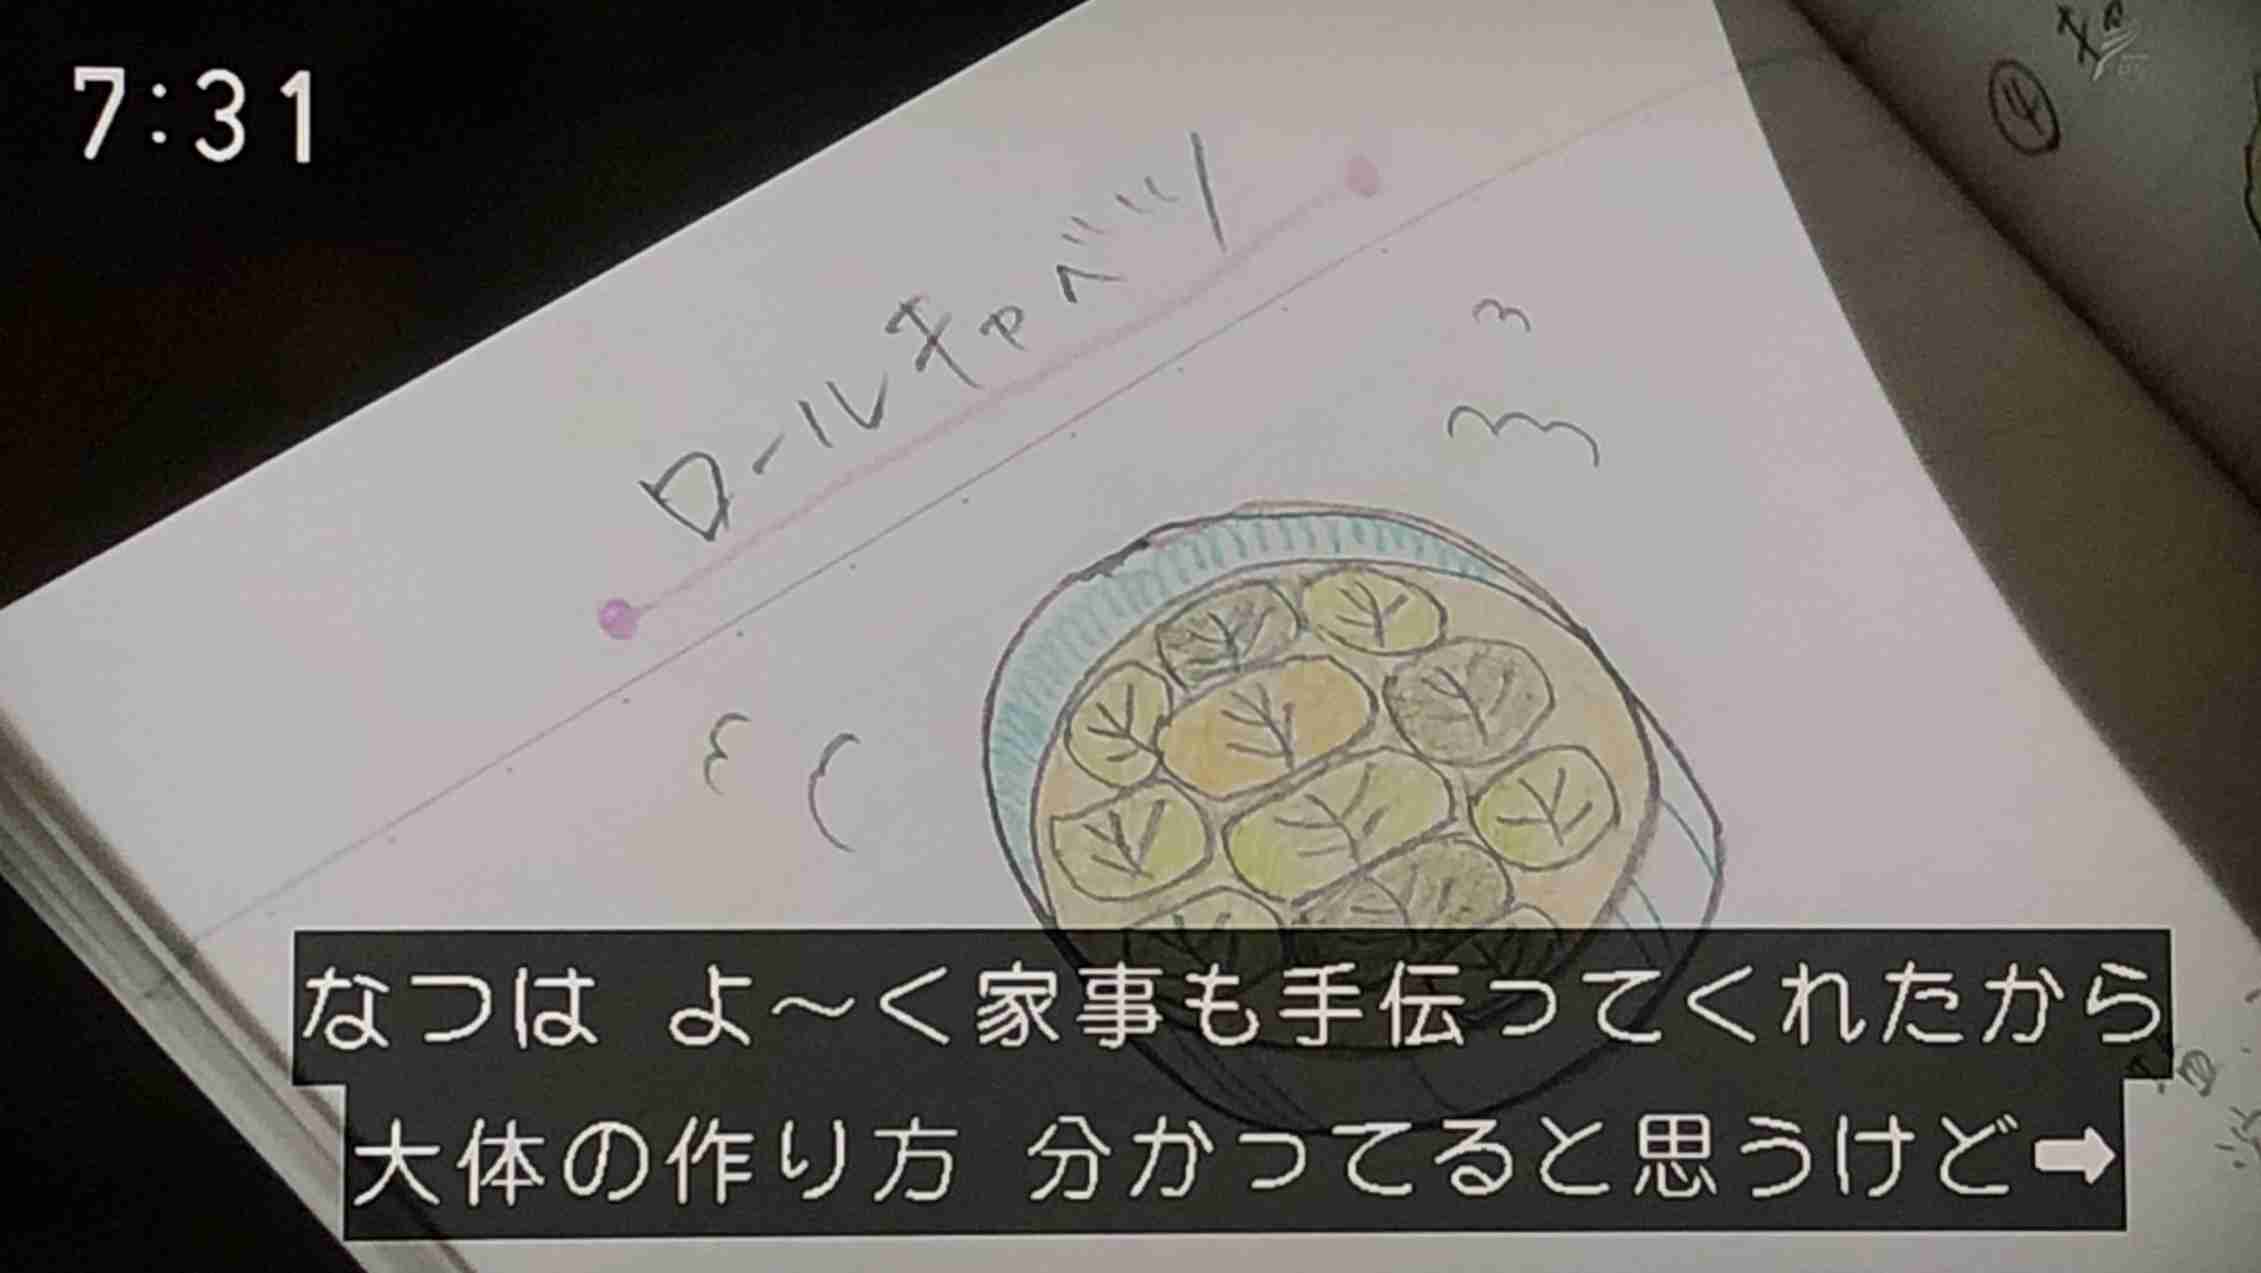 7:31
ロールキャベツ
④
なつは よ～く家事も手伝ってくれたから
大体の作り方 分かってると思うけど➡